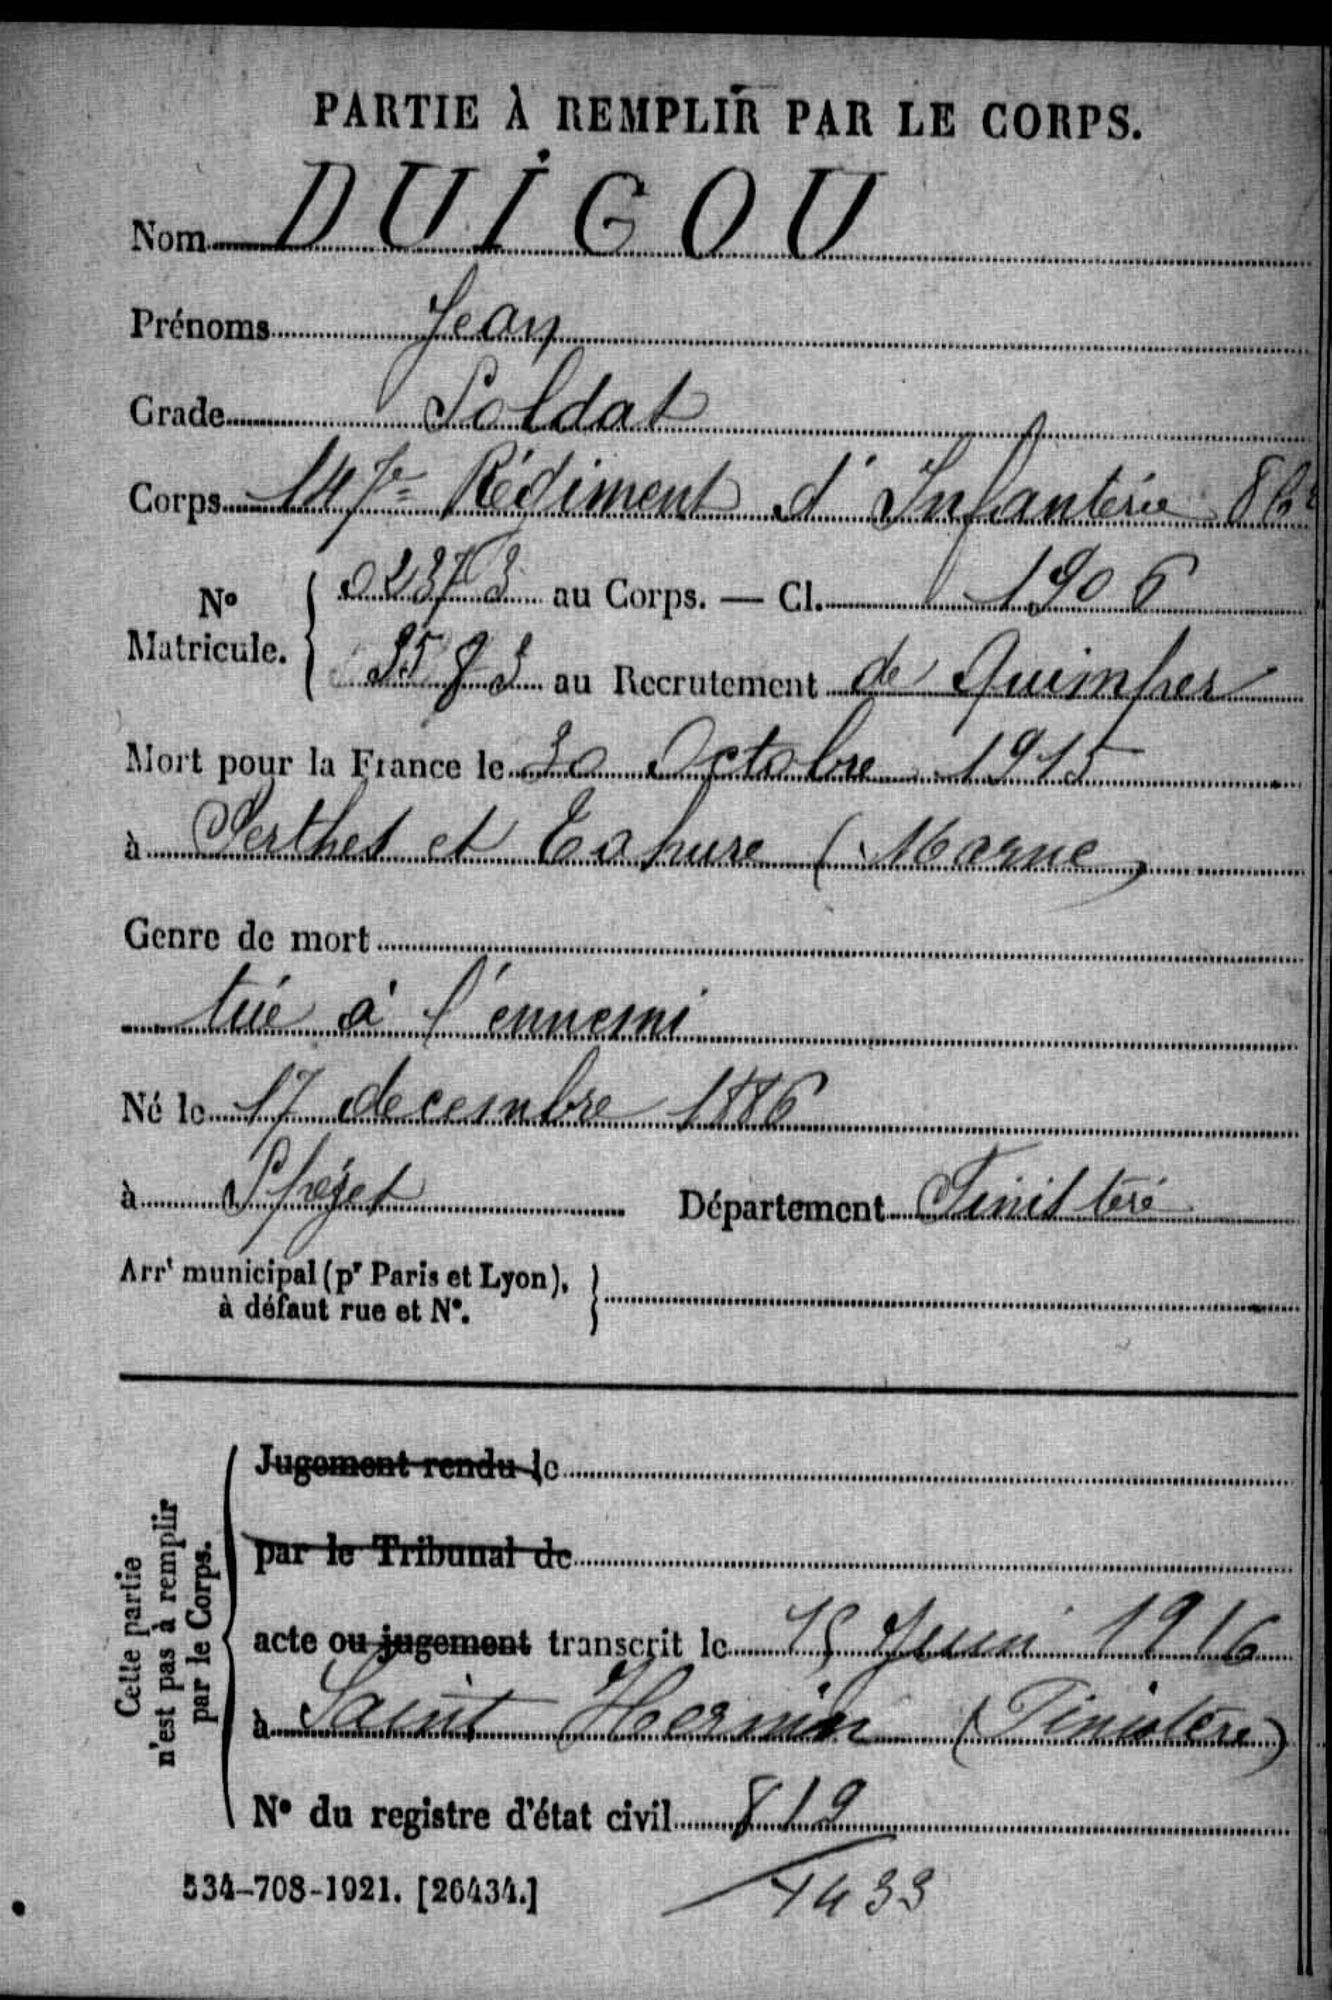 PARTIE À REMPLIR PAR LE CORPS.
Nom DUIGOU
Prénoms Jean
Grade Soldat
Corps 147e Régiment d'Infanterie
N° Matricule. { 02373 au Corps. — Cl. 1906
3573 au Recrutement de Quimper
Mort pour la France le 30 Octobre 1915
à Perthes et Tahure (Marne)
Genre de mort
tué à l'ennemi
Né le 17 decembre 1886
à Spézet Département Finistère
Arrt municipal (pr Paris et Lyon),
à défaut rue et N°.
Jugement rendu le
par le Tribunal de
acte ou jugement transcrit le 15 Juin 1916
à Saint Hernin (Finistère)
N° du registre d'état civil 819
Cette partie
n'est pas à remplir
par le Corps.
534-708-1921. [26434.]
1433